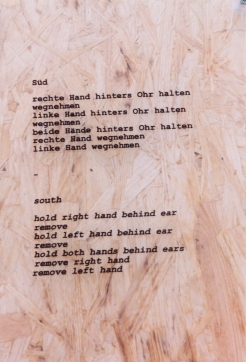 Süd
rechte Hand hinters Ohr halten
wegnehmen
linke Hand hinters Ohr halten
wegnehmen
beide Hände hinters Ohr halten
rechte Hand wegnehmen
linke Hand wegnehmen
–
south
hold right hand behind ear
remove
hold left hand behind ear
remove
hold both hands behind ears
remove right hand
remove left hand